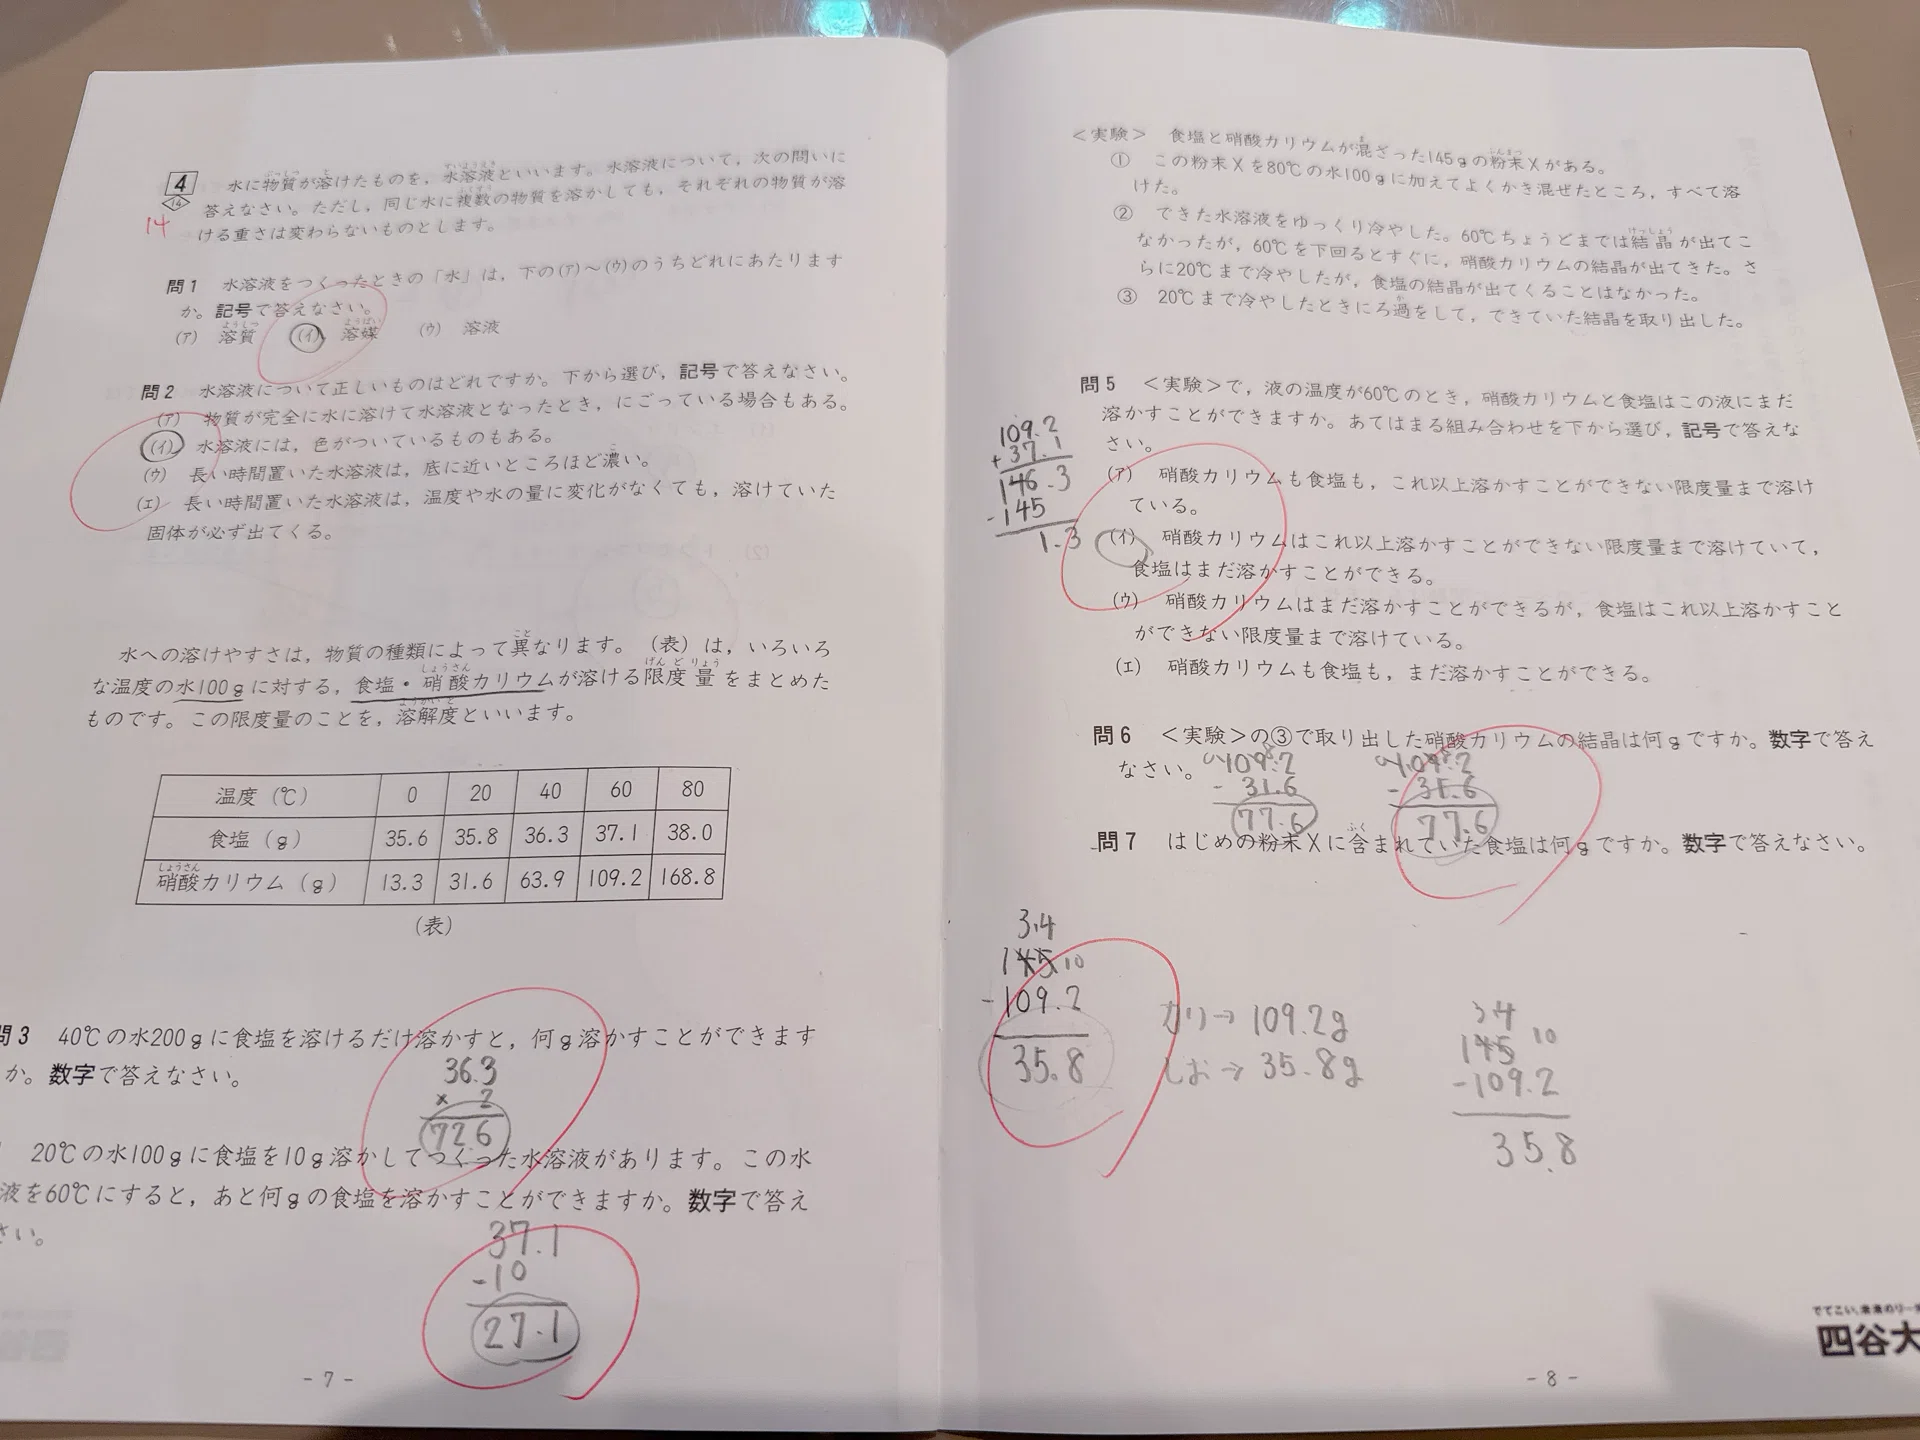 4 水に物質が溶けたものを，水溶液といいます。水溶液について，次の問いに
14
答えなさい。ただし，同じ水に複数の物質を溶かしても，それぞれの物質が溶
14
ける重さは変わらないものとします。
問1 水溶液をつくったときの「水」は，下の(ア)～(ウ)のうちどれにあたります
か。記号で答えなさい。
(ア) 溶質 (イ) 溶媒 (ウ) 溶液
問2 水溶液について正しいものはどれですか。下から選び，記号で答えなさい。
(ア) 物質が完全に水に溶けて水溶液となったとき，にごっている場合もある。
(イ) 水溶液には，色がついているものもある。
(ウ) 長い時間置いた水溶液は，底に近いところほど濃い。
(エ) 長い時間置いた水溶液は，温度や水の量に変化がなくても，溶けていた
固体が必ず出てくる。
水への溶けやすさは，物質の種類によって異なります。（表）は，いろいろ
な温度の水100gに対する，食塩・硝酸カリウムが溶ける限度量をまとめた
ものです。この限度量のことを，溶解度といいます。
温度（℃） 0 20 40 60 80
食塩（g） 35.6 35.8 36.3 37.1 38.0
硝酸カリウム（g） 13.3 31.6 63.9 109.2 168.8
（表）
問3 40℃の水200gに食塩を溶けるだけ溶かすと，何g溶かすことができます
か。数字で答えなさい。
36.3
× 2
72.6
20℃の水100gに食塩を10g溶かしてつくった水溶液があります。この水
液を60℃にすると，あと何gの食塩を溶かすことができますか。数字で答え
さい。
37.1
-10
27.1
- 7 -
＜実験＞ 食塩と硝酸カリウムが混ざった145gの粉末Xがある。
① この粉末Xを80℃の水100gに加えてよくかき混ぜたところ，すべて溶
けた。
② できた水溶液をゆっくり冷やした。60℃ちょうどまでは結晶が出てこ
なかったが，60℃を下回るとすぐに，硝酸カリウムの結晶が出てきた。さ
らに20℃まで冷やしたが，食塩の結晶が出てくることはなかった。
③ 20℃まで冷やしたときにろ過をして，できていた結晶を取り出した。
問5 ＜実験＞で，液の温度が60℃のとき，硝酸カリウムと食塩はこの液にまだ
溶かすことができますか。あてはまる組み合わせを下から選び，記号で答えな
さい。
109.2
+ 37.1
146.3
-145
1.3
(ア) 硝酸カリウムも食塩も，これ以上溶かすことができない限度量まで溶け
ている。
(イ) 硝酸カリウムはこれ以上溶かすことができない限度量まで溶けていて，
食塩はまだ溶かすことができる。
(ウ) 硝酸カリウムはまだ溶かすことができるが，食塩はこれ以上溶かすこと
ができない限度量まで溶けている。
(エ) 硝酸カリウムも食塩も，まだ溶かすことができる。
問6 ＜実験＞の③で取り出した硝酸カリウムの結晶は何gですか。数字で答え
なさい。
109.2 109.2
- 31.6 - 31.6
77.6 77.6
問7 はじめの粉末Xに含まれていた食塩は何gですか。数字で答えなさい。
3.4
145 10
-109.2
35.8
カリ→109.2g
しお→35.8g
34
145 10
-109.2
35.8
でてこい、未来のリーダ
四谷大
- 8 -